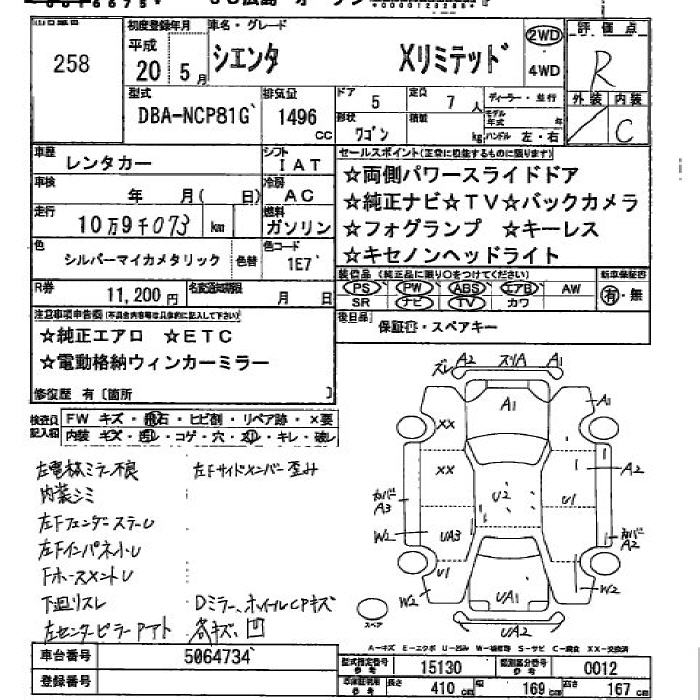 258
初度登録年月
平成
20 5月
車名・グレード
シエンタ Xリミテッド
2WD
4WD
評価点
R
外装 内装
C
型式
DBA-NCP81G
排気量
1496
CC
ドア 5
定員 7人
ディーラー・並行
形状 ワゴン
積載 kg
モデル年式 年
ハンドル 左・右
車歴
レンタカー
シフト
IAT
車検
年 月( 日)
冷房
AC
走行
10万9千073 km
燃料
ガソリン
色
シルバーマイカメタリック
色替
色コード
1E7
セールスポイント(正常に機能するものに限ります)
☆両側パワースライドドア
☆純正ナビ☆TV☆バックカメラ
☆フォグランプ ☆キーレス
☆キセノンヘッドライト
R券
11,200円
名変通知期限
月 日
装備品(純正品に限り○をつけてください)
PS PW ABS エアB AW
SR ナビ TV カワ
新車保証書
有・無
後日品
保証書・スペアキー
注意事項申告欄(不具合内容等は具体的に記入して下さい)
☆純正エアロ ☆ETC
☆電動格納ウィンカーミラー
修復歴 有〔箇所 〕
検査員記入欄
FW キズ・飛石・ヒビ割・リペア跡・×要
内装 キズ・汚レ・コゲ・穴・スレ・キレ・破レ
左電格ミラー不良 左Fサイドメンバー歪み
内装シミ
左FフェンダーステーU
左FインパネホU
FホースメントU
下廻リスレ Dミラー、ホイルCPキズ
左センターピラーPアト 各キズ、凹
ズレ A2 スリA A1
A1
A1
XX
XX
A2
カバーA3
U2
U1
W2
UA3
カバーA2
U1
W2
UA1
W2
UA2
スペア
A-キズ E-エクボ U-凹み W-補修等 S-サビ C-腐食 XX-交換済
車台番号
5064734
登録番号
型式指定番号 参考
15130
類別区分番号 参考
0012
車体諸元 参考
長さ 410 cm
幅 169 cm
高さ 167 cm